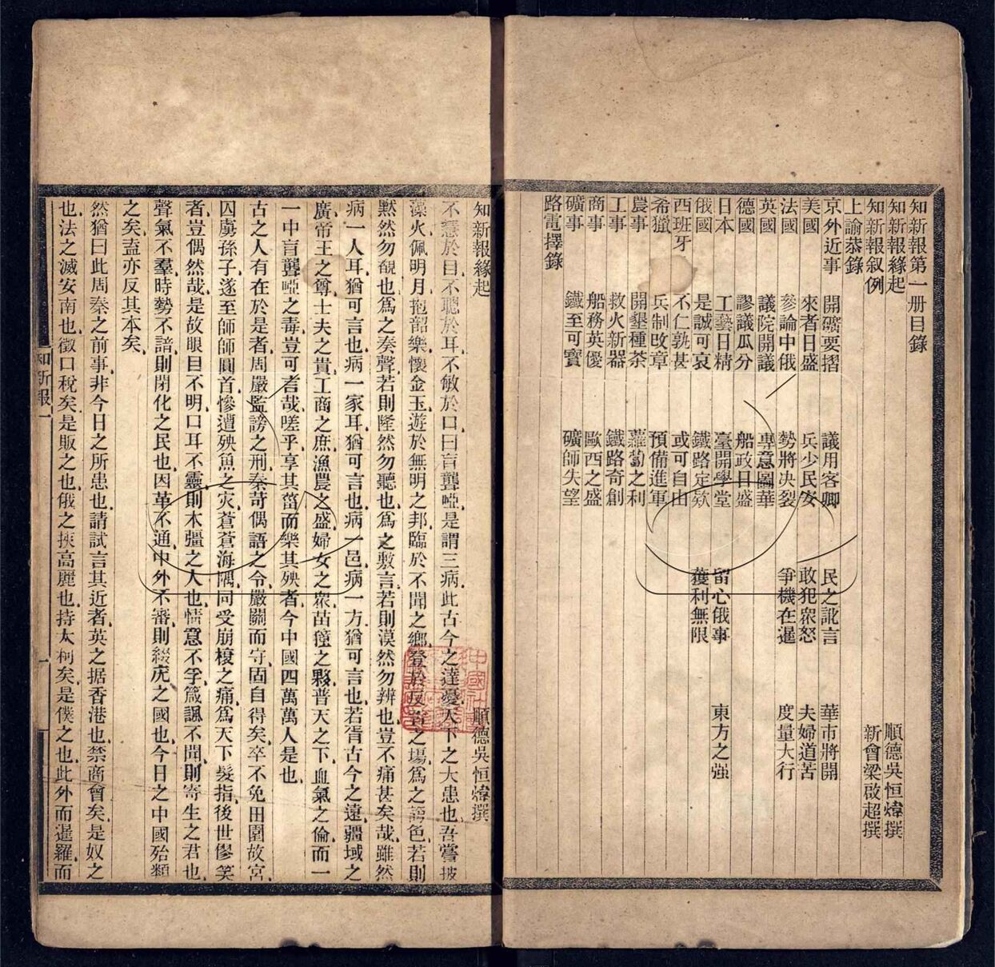 知新報第一册目錄
知新報緣起 順德吳恒煒撰
知新報叙例 新會梁啟超撰
上諭恭錄
京外近事 開礦要摺 議用客卿 民之訛言 華市將開
美國 來者日盛 兵少民安 敢犯衆怒 夫婦道苦
法國 參論中俄 勢將决裂 爭機在暹 度量大行
英國 議院開議 專意國華
德國 謬議瓜分 船政日盛
日本 工藝日精 臺開學堂 留心俄事 東方之强
俄國 是誠可哀 鐵路定欵 獲利無限
西班牙 不仁孰甚 或可自由
希獵 兵制改章 預備進軍
農事 開墾種茶 蘿蔔之利
工事 救火新器 鐵路奇創
商事 船務英優 歐西之盛
礦事 鐵至可寶 礦師失望
路電擇錄
知新報緣起 順德吳恒煒撰
不慧於目不聰於耳不敏於口曰盲聾啞是謂三病此古今之達憂天下之大患也吾嘗披
藻火佩明月抱韶樂懷金玉遊於無明之邦臨於不聞之鄉登於反舌之塲爲之 色若則
黙然勿覩也爲之奏聲若則 然勿聽也爲之敷言若則漠然勿辨也豈不痛甚矣哉雖然
病一人耳猶可言也病一家耳猶可言也病一邑病一方猶可言也若胥古今之遠疆域之
廣帝王之尊士夫之貴工商之庶漁農之盛婦女之衆苗 之夥普天之下血氣之倫而一
一中盲聾啞之毒豈可者哉嗟乎享其菑而樂其殃者今中國四萬萬人是也
古之人有在於是者周嚴監謗之刑秦苛偶語之令嚴關而守固自得矣卒不免田園故宮
囚虜孫子遂至師師圓首慘遭殃魚之灾蒼蒼海隅同受崩榱之痛爲天下髮指後世僇笑
者豈偶然哉是故眼目不明口耳不靈則木彊之人也情意不孚箴諷不聞則寄生之君也
聲氣不羣時勢不諳則閉化之民也因革不通中外不審則綴虎之國也今日之中國殆類
之矣盍亦反其本矣
然猶曰此周秦之前事非今日之所患也請試言其近者英之据香港也禁商會矣是奴之
也法之滅安南也徵口稅矣是販之也俄之挾高麗也持太柯矣是僕之也此外而暹羅而
知新報一
一